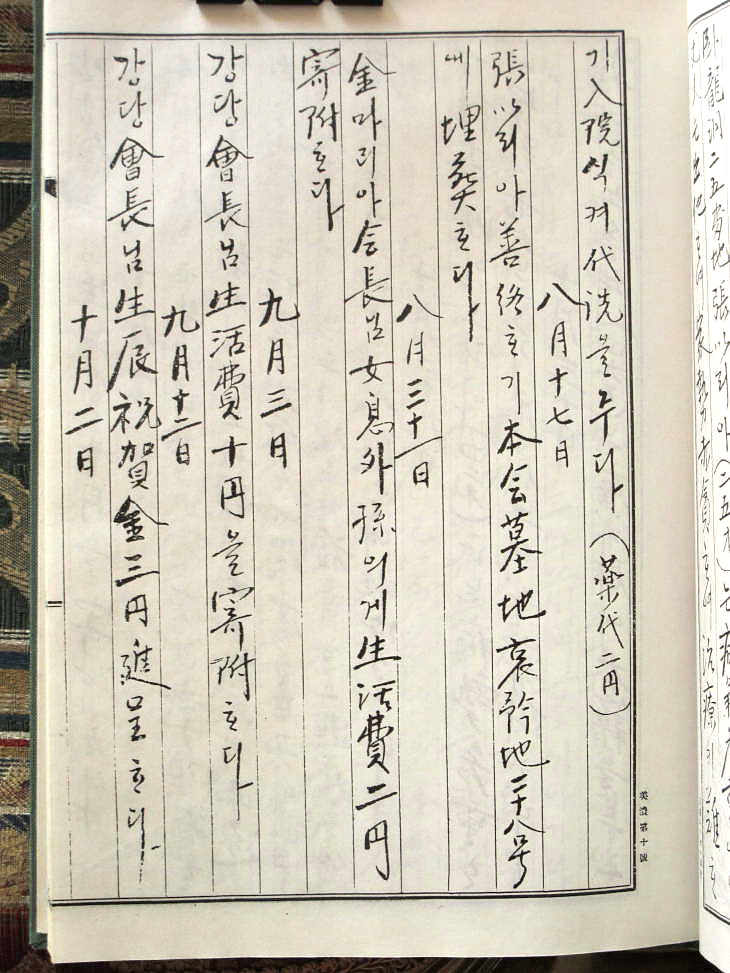 臥龍洞二五番地張以리아(二五才)는病
기入院식켜代洗을주다(薬代二円)
八月十七日
張以리아善終ᄒᆞ기本会墓地哀矜地二十八号
에埋葬ᄒᆞ다
八月三十一日
金마리아会長님女息外孫의게生活費二円
寄附ᄒᆞ다
九月三日
강당會長님生活費十円을寄附ᄒᆞ다
九月十二日
강당會長님生辰祝賀金三円進呈ᄒᆞ다
十月二日
英設第十號